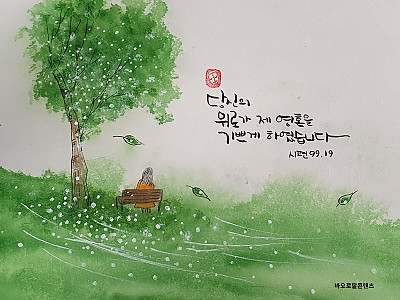 당신의
위로가 제 영혼을
기쁘게 하였습니다
시편 94,19
바오로딸콘텐츠